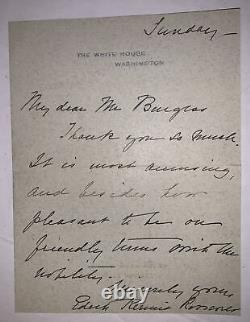 Sunday —
THE WHITE HOUSE
WASHINGTON
My dear Mr Burgess
Thank you so much.
It is most amusing,
and besides how
pleasant to be on
friendly terms with the
nobility.
Sincerely yours
Edith Kermit Roosevelt